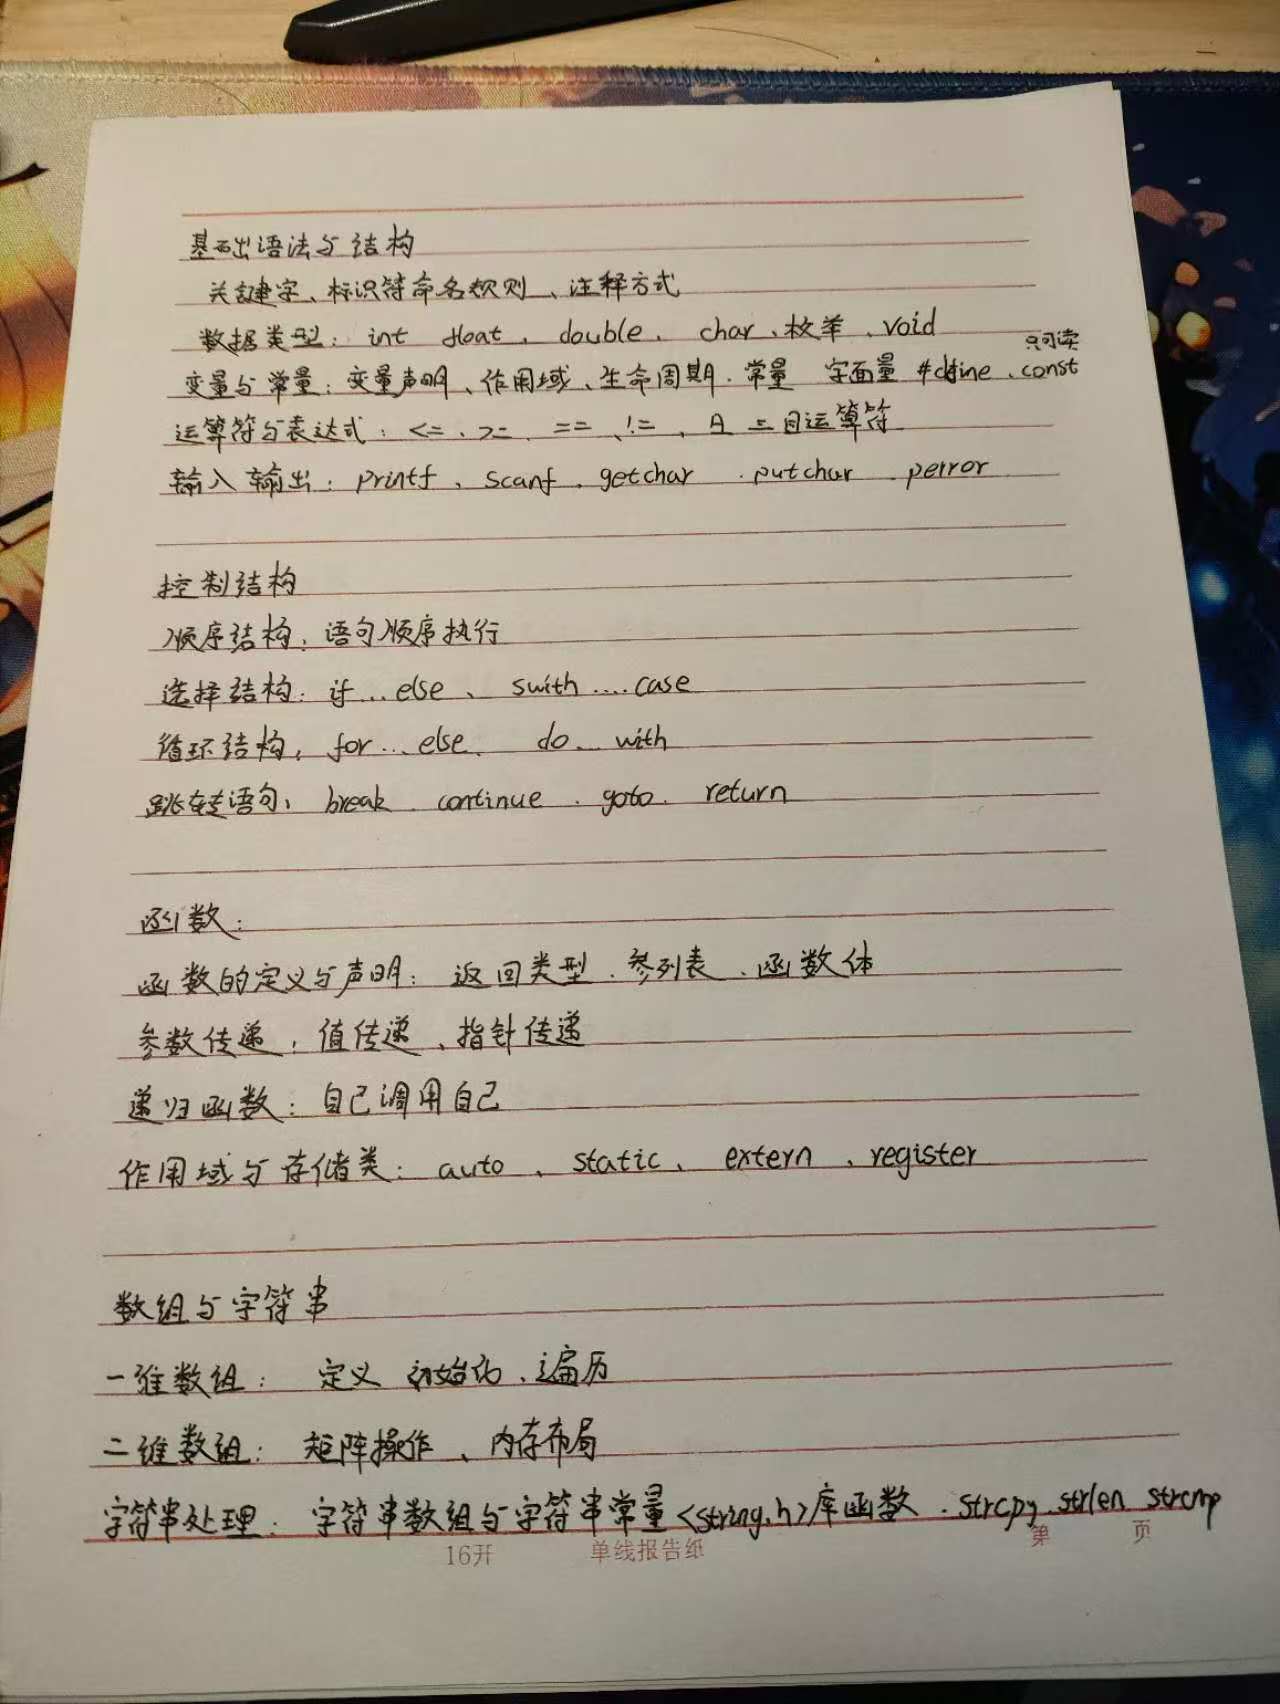 基础语法与结构
关键字、标识符命名规则、注释方式
数据类型：int float、double、char、枚举、void
只可读
变量与常量：变量声明、作用域、生命周期、常量 字面量 #define、const
运算符与表达式：<=、>=、==、!=、 三目运算符
输入输出：printf、scanf、getchar、putchar perror
控制结构
顺序结构：语句顺序执行
选择结构：if...else、swith....case
循环结构：for...else、do...with
跳转语句：break、continue、goto、return
函数：
函数的定义与声明：返回类型、参列表、函数体
参数传递：值传递、指针传递
递归函数：自己调用自己
作用域与存储类：auto、static、extern、register
数组与字符串
一维数组：定义 初始化、遍历
二维数组：矩阵操作、内存布局
字符串处理：字符串数组与字符串常量<string.h>库函数、strcpy、strlen strcmp
16开 单线报告纸 第 页